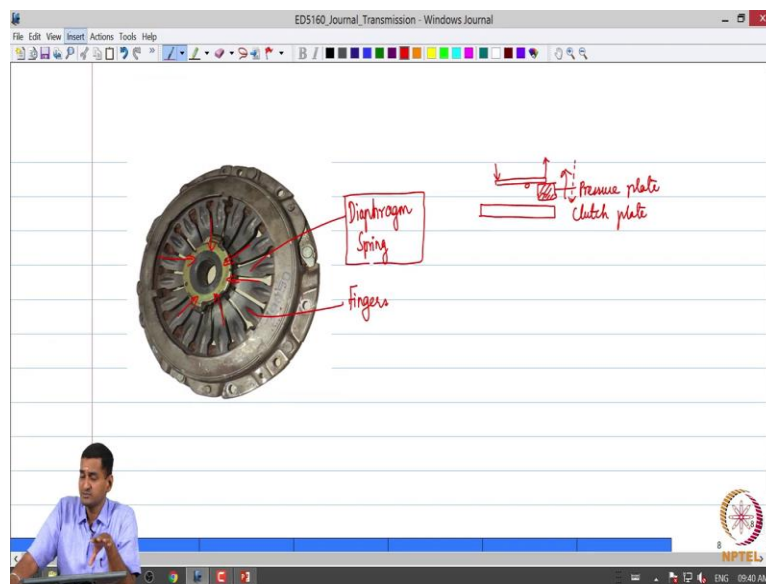 ED5160_Journal_Transmission - Windows Journal
File Edit View Insert Actions Tools Help
B I
Diaphragm
Spring
Fingers
Pressure plate
Clutch plate
8
8
NPTEL
ENG 09:40 AM